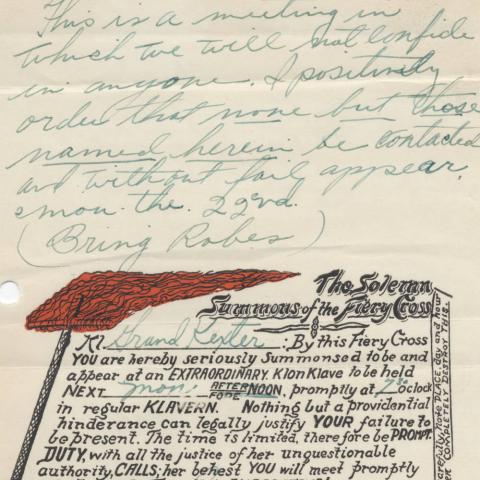 This is a meeting in
which we will not confide
in anyone. I positively
order that none but those
named herein be contacted
and without fail appear.
mon. the. 22nd.
(Bring Robes)
The Solemn
Summons of the Fiery Cross
Kl Grand Kexter : By this Fiery Cross
YOU are hereby seriously Summonsed to be and
appear at an EXTRAORDINARY Klon Klave to be held
NEXT mon. AFTERNOON, promptly at 7 30 oclock
FORE
in regular KLAVERN. Nothing but a providential
hinderance can legally justify YOUR failure to
be present. The time is limited, therefore be PROMPT.
DUTY, with all the justice of her unquestionable
authority, CALLS; her behest YOU will meet promptly
carefully, note PLACE day and hour
COMPLETELY DESTROY THIS.